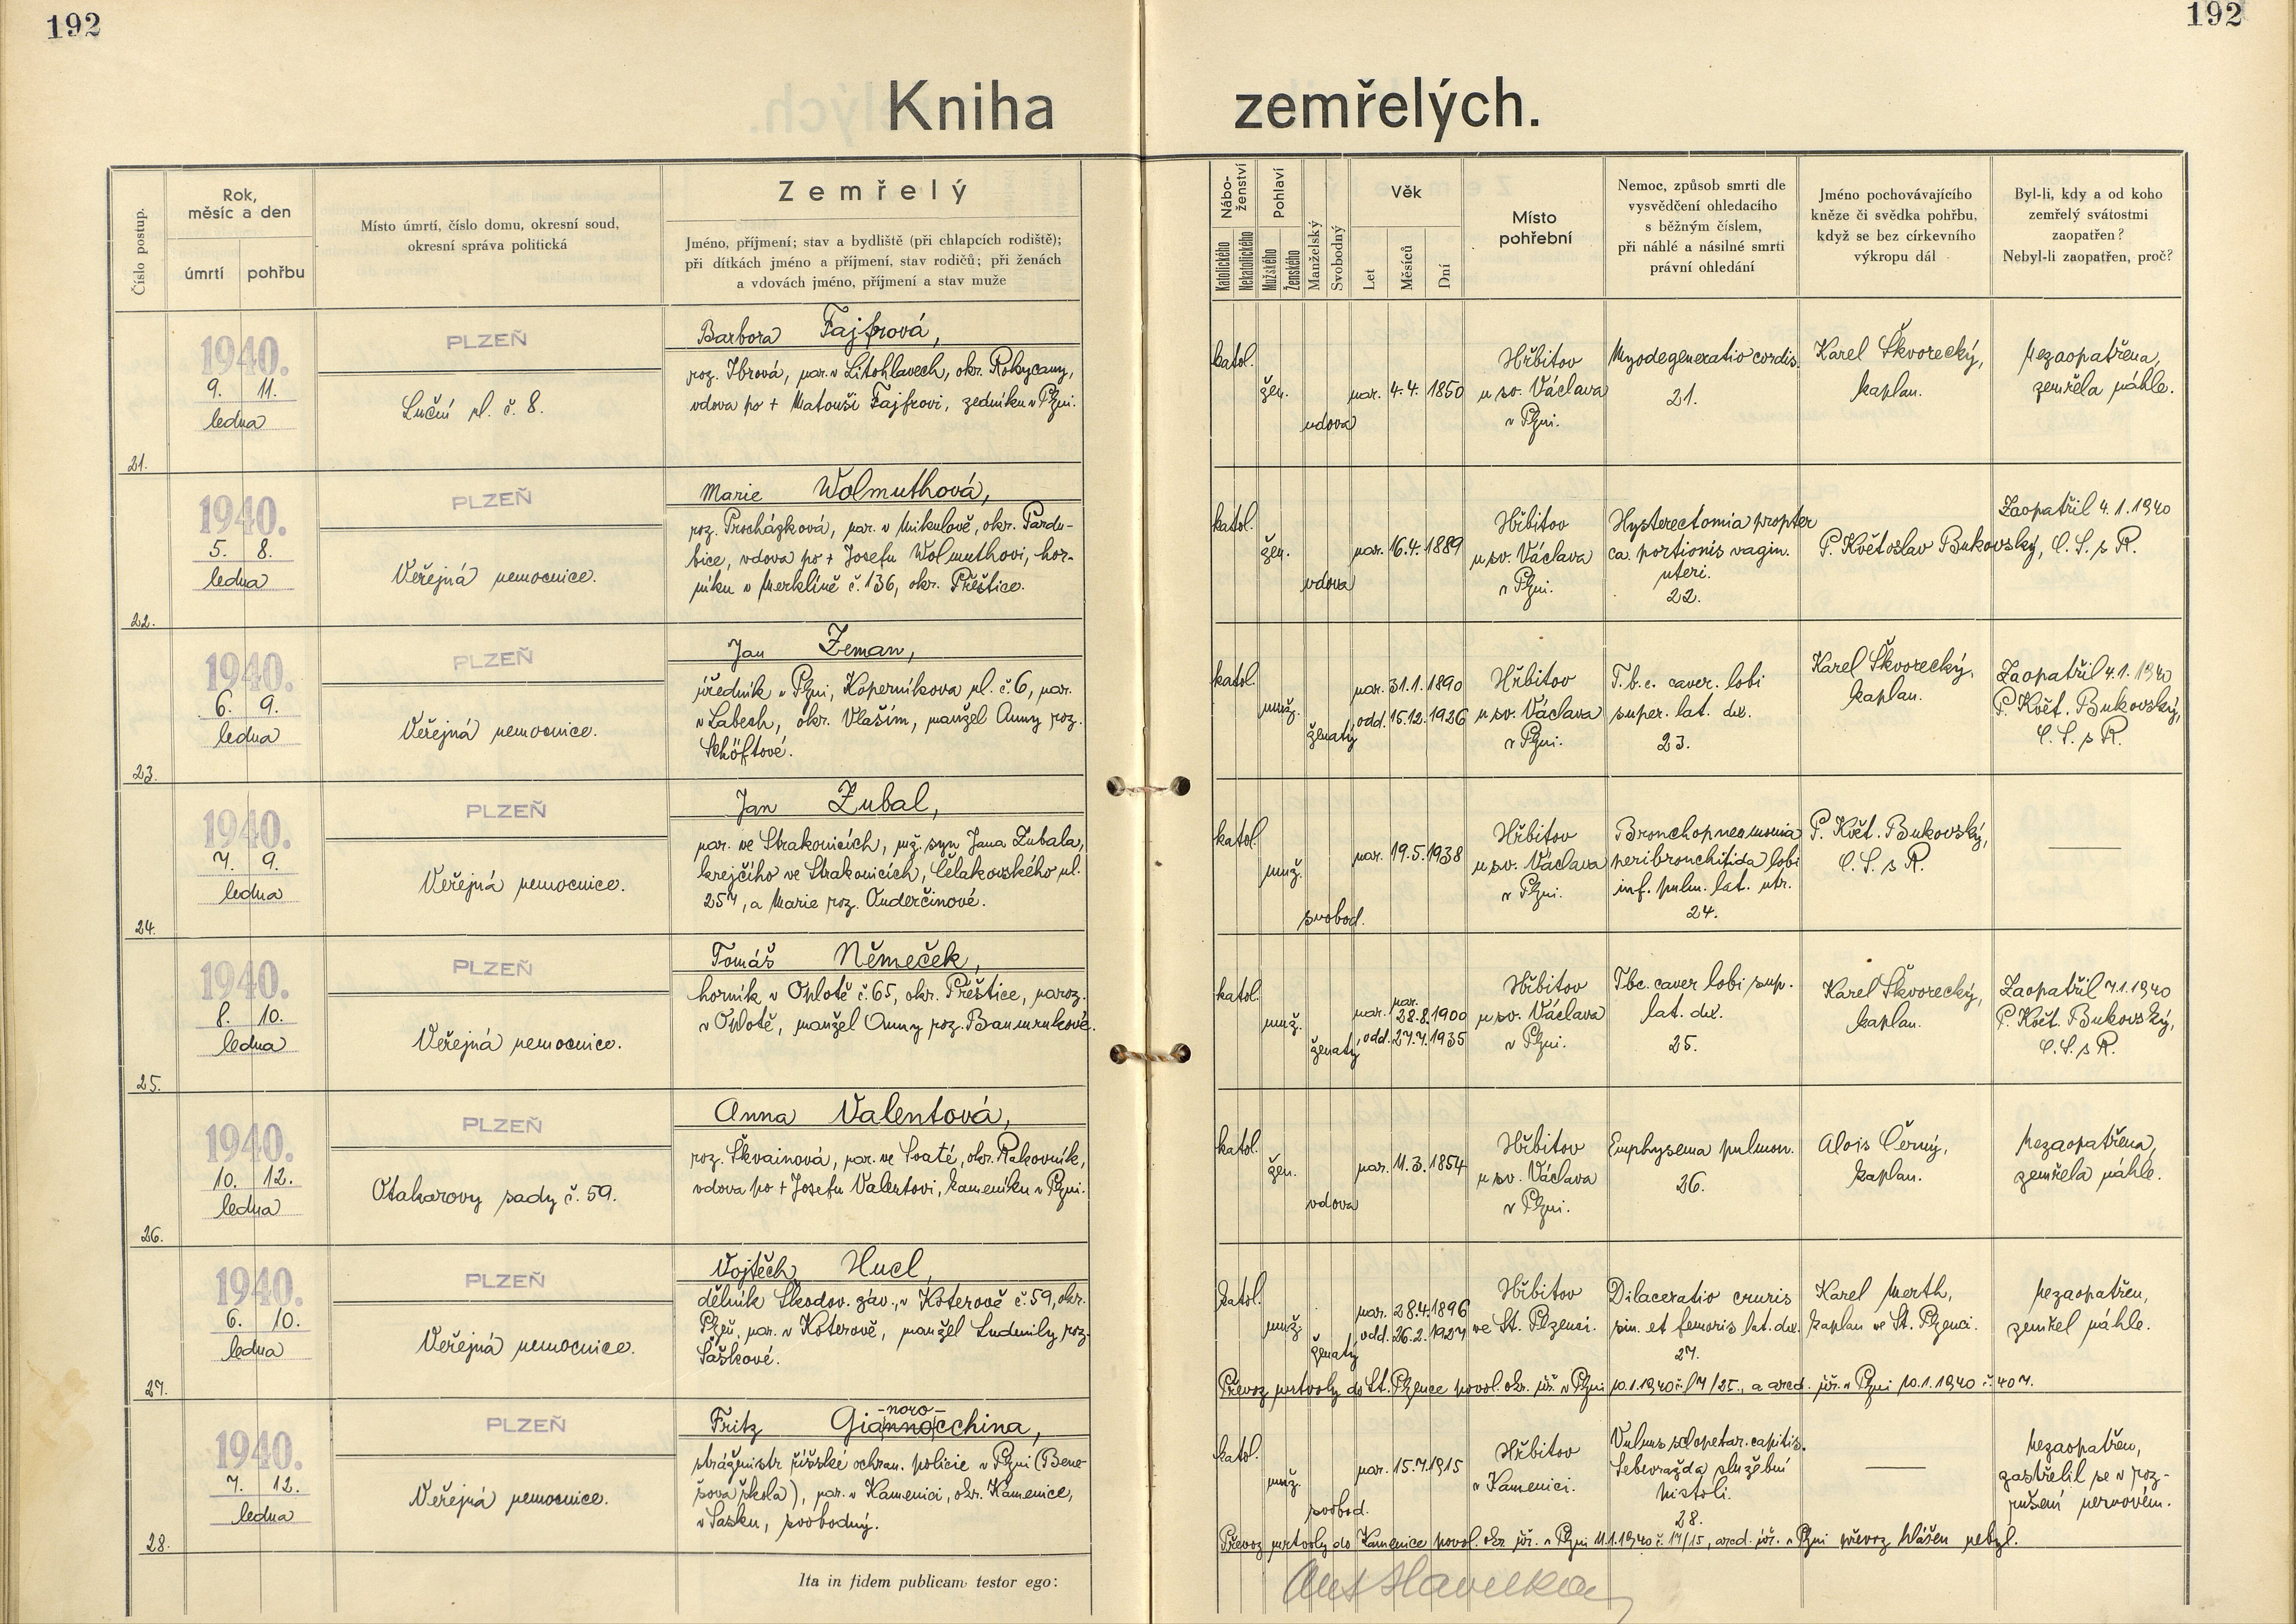 192
192
Kniha zemřelých.
Číslo postup.
Rok, měsíc a den
úmrtí
pohřbu
Místo úmrtí, číslo domu, okresní soud,
okresní správa politická
Zemřelý
Jméno, příjmení; stav a bydliště (při chlapcích rodiště);
při dítkách jméno a příjmení, stav rodičů; při ženách
a vdovách jméno, příjmení a stav muže
Nábo-
ženství
Katolického
Nekatolického
Pohlaví
Mužského
Ženského
Manželský
Svobodný
Věk
Let
Měsíců
Dní
Místo
pohřební
Nemoc, způsob smrti dle
vysvědčení ohledacího
s běžným číslem,
při náhlé a násilné smrti
právní ohledání
Jméno pochovávajícího
kněze či svědka pohřbu,
když se bez církevního
výkropu dál
Byl-li, kdy a od koho
zemřelý svátostmi
zaopatřen?
Nebyl-li zaopatřen, proč?
21.
1940.
9. 11.
ledna
PLZEŇ
Luční ul. č. 8.
Barbora Fajfrová,
roz. Ibrová, nar. v Litohlavech, okr. Rokycany,
vdova po + Matouši Fajfrovi, zedníku v Plzni.
katol.
žen.
vdova
nar. 4. 4. 1850
Hřbitov
u sv. Václava
v Plzni.
Myodegeneratio cordis.
21.
Karel Škvorecký,
kaplan.
Nezaopatřena,
zemřela náhle.
22.
1940.
5. 8.
ledna
PLZEŇ
Veřejná nemocnice.
Marie Wolmuthová,
roz. Procházková, nar. v Mikulově, okr. Pardu-
bice, vdova po + Josefu Wolmuthovi, hor-
níku v Merklíně č. 136, okr. Přeštice.
katol.
žen.
vdova
nar. 16. 4. 1889
Hřbitov
u sv. Václava
v Plzni.
Hysterectomia propter
ca. portionis vagin.
uteri.
22.
P. Květoslav Bukovský, C. S. s R.
Zaopatřil 4. 1. 1940
23.
1940.
6. 9.
ledna
PLZEŇ
Veřejná nemocnice.
Jan Zeman,
úředník v Plzni, Koperníkova ul. č. 6, nar.
v Labech, okr. Vlašim, manžel Anny roz.
Schöftové.
katol.
muž.
ženatý
nar. 31. 1. 1890
odd. 15. 12. 1926
Hřbitov
u sv. Václava
v Plzni.
T. b. c. caver. lobi
super. lat. dex.
23.
Karel Škvorecký,
kaplan.
Zaopatřil 4. 1. 1940
P. Květ. Bukovský,
C. S. s R.
24.
1940.
7. 9.
ledna
PLZEŇ
Veřejná nemocnice.
Jan Zubal,
nar. ve Strakonicích, mž. syn Jana Zubala,
krejčího ve Strakonicích, Čelakovského ul.
257, a Marie roz. Onderčinové.
katol.
muž.
svobod.
nar. 19. 5. 1938
Hřbitov
u sv. Václava
v Plzni.
Bronchopneumonia
peribronchitida lobi
inf. pulm. lat. utr.
24.
P. Květ. Bukovský,
C. S. s R.
25.
1940.
8. 10.
ledna
PLZEŇ
Veřejná nemocnice.
Tomáš Němeček,
horník v Oplotě č. 65, okr. Přeštice, naroz.
v Oplotě, manžel Anny roz. Baumrukové.
katol.
muž.
ženatý
nar. nar. 28. 8. 1900
odd. 27. 7. 1935
Hřbitov
u sv. Václava
v Plzni.
Tbc. caver lobi sup.
lat. dex.
25.
Karel Škvorecký,
kaplan.
Zaopatřil 7. 1. 1940
P. Květ. Bukovský,
C. S. s R.
26.
1940.
10. 12.
ledna
PLZEŇ
Otakarovy sady č. 59.
Anna Valentová,
roz. Škvainová, nar. ve Svaté, okr. Rakovník,
vdova po + Josefu Valentovi, kameníku v Plzni.
katol.
žen.
vdova
nar. 11. 3. 1854
Hřbitov
u sv. Václava
v Plzni.
Emphysema pulmon.
26.
Alois Černý,
kaplan.
Nezaopatřena,
zemřela náhle.
27.
1940.
6. 10.
ledna
PLZEŇ
Veřejná nemocnice.
Vojtěch Hucl,
dělník Škodov. záv., v Koterově č. 59, okr.
Plzeň, nar. v Koterově, manžel Ludmily roz.
Šaškové.
katol.
muž.
ženatý
nar. 28. 4. 1896
odd. 26. 2. 1927
Hřbitov
ve St. Plzenci.
Dilaceratio cruris
sin. et femoris lat. dex.
27.
Karel Merth,
kaplan ve St. Plzenci.
Nezaopatřen,
zemřel náhle.
Převoz mrtvoly do St. Plzence povol. okr. úř. v Plzni 10. 1. 1940 č. 17/25., a arcid. úř. v Plzni 10. 1. 1940 č. 407.
28.
1940.
7. 12.
ledna
PLZEŇ
Veřejná nemocnice.
-noro-
Fritz Giannocchina,
strážmistr říšské ochran. policie v Plzni (Bene-
šova škola), nar. v Kamenici, okr. Kamenice,
v Sasku, svobodný.
katol.
muž.
svobod.
nar. 15. 7. 1915
Hřbitov
v Kamenici.
Vulnus sclopetar. capitis.
Sebevražda služební
pistolí.
28.
Nezaopatřen,
zastřelil se v roz-
rušení nervovém.
Převoz mrtvoly do Kamenice povol. okr. úř. v Plzni 11. 1. 1940 č. 17/15, arcid. úř. v Plzni převoz hlášen nebyl.
Ita in fidem publicam testor ego:
Ant Havelka